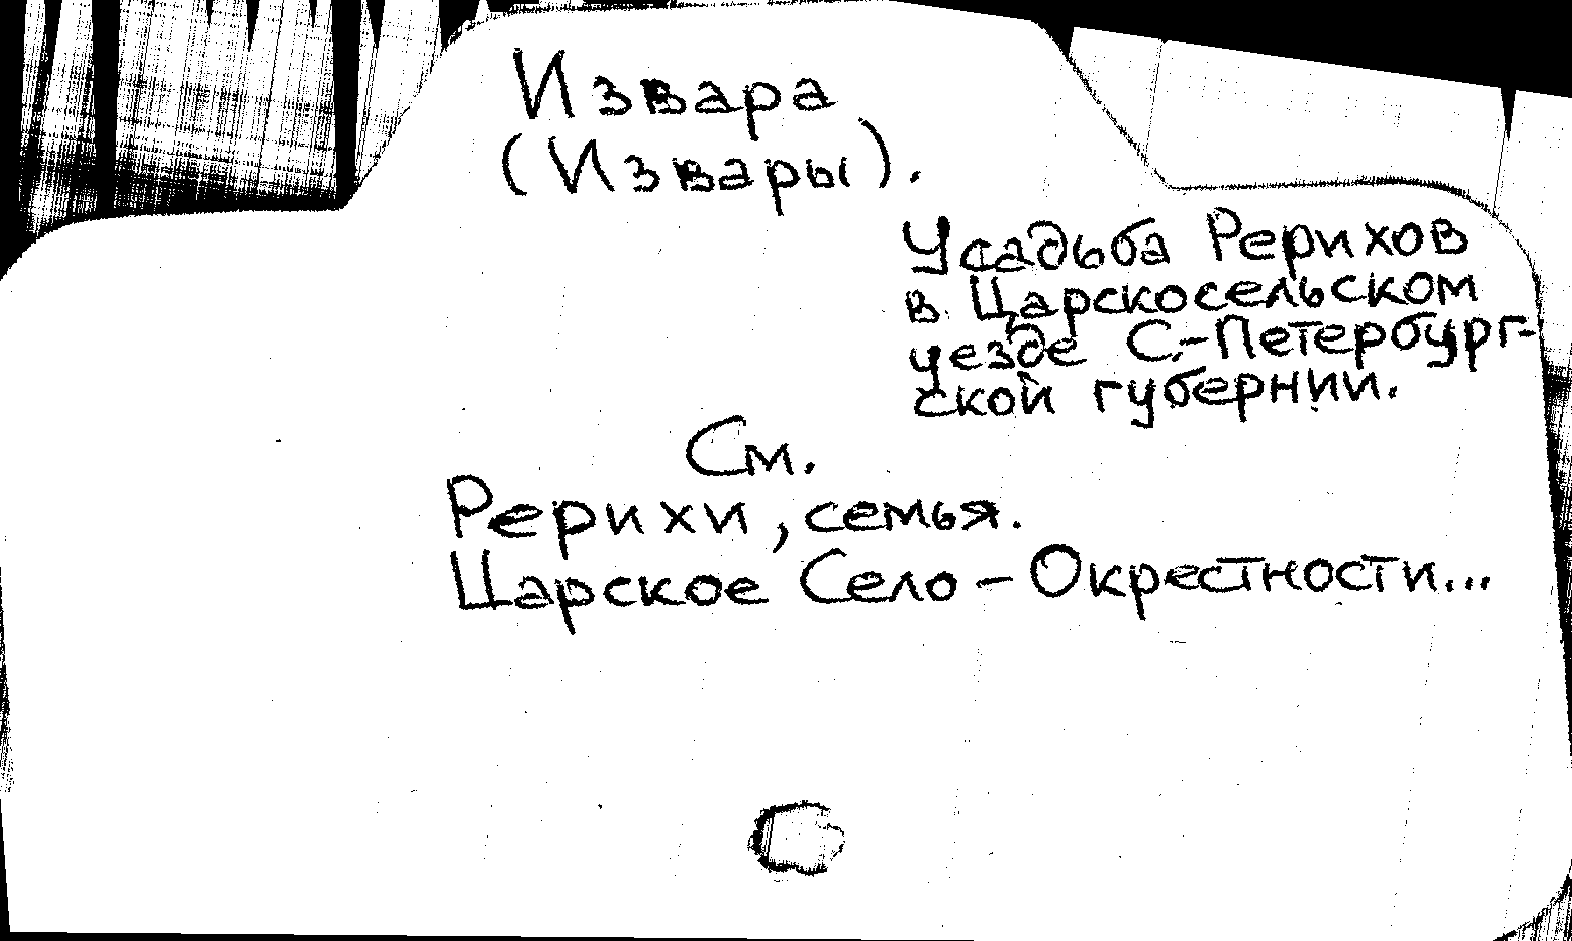 Извара
(Извары).
Усадьба Рерихов
в Царскосельском
уезде С.-Петербург-
ской губернии.
См.
Рерихи, семья.
Царское Село - Окрестности...